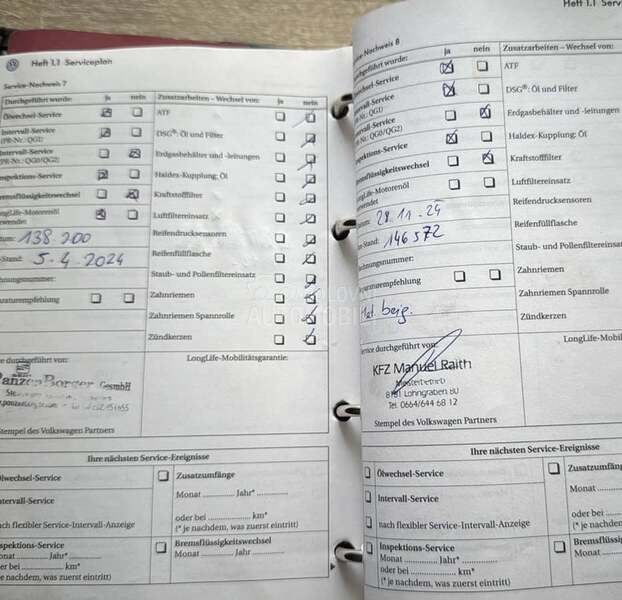 Heft 1.1 Serviceplan
Service-Nachweis 7
Durchgeführt wurde: ja nein
Zusatzarbeiten – Wechsel von: ja nein
Ölwechsel-Service
ATF
Intervall-Service
(PR-Nr.: QG1)
DSG®: Öl und Filter
Intervall-Service
(PR-Nr.: QG0/QG2)
Erdgasbehälter und -leitungen
Inspektions-Service
Haldex-Kupplung; Öl
Bremsflüssigkeitswechsel
Kraftstofffilter
LongLife-Motorenöl
Luftfiltereinsatz
138 200
Reifendrucksensoren
-Stand: 5-4 2024
Reifenfüllflasche
Staub- und Pollenfiltereinsatz
Zahnriemen
Zahnriemen Spannrolle
Zündkerzen
durchgeführt von:
LongLife-Mobilitätsgarantie:
GesmbH
Stempel des Volkswagen Partners
Ihre nächsten Service-Ereignisse
Ölwechsel-Service
Zusatzumfänge
Monat Jahr*
Intervall-Service
oder bei km*
(* je nachdem, was zuerst eintritt)
nach flexibler Service-Intervall-Anzeige
Inspektions-Service
Monat Jahr*
oder bei km*
(*je nachdem, was zuerst eintritt)
Bremsflüssigkeitswechsel
Monat Jahr*
Heft 1.1 Serv
-Nachweis 8
wurde: ja nein
Zusatzarbeiten – Wechsel von:
-Service
ATF
-Service
QG1)
DSG®: Öl und Filter
-Service
QG0/QG2)
Erdgasbehälter und -leitungen
-Service
Haldex-Kupplung; Öl
Bremsflüssigkeitswechsel
Kraftstofffilter
LongLife-Motorenöl
Luftfiltereinsatz
28.11.24
Reifendrucksensoren
-Stand: 146572
Reifenfüllflasche
Staub- und Pollenfiltereinsatz
Zahnriemen
Zahnriemen Spannrolle
Zündkerzen
beig.
Service durchgeführt von:
LongLife-Mobi
KFZ Manuel Raith
Meisterbetrieb
Lohngraben 80
Tel. 0664/644 68 12
Stempel des Volkswagen Partners
Ihre nächsten Service-Ereignisse
Ölwechsel-Service
Zusatzumfän
Monat
Intervall-Service
oder bei
(* je nachdem,
nach flexibler Service-Intervall-Anzeige
Inspektions-Service
Monat Jahr*
oder bei km*
(*je nachdem, was zuerst eintritt)
Bremsflüssig
Monat